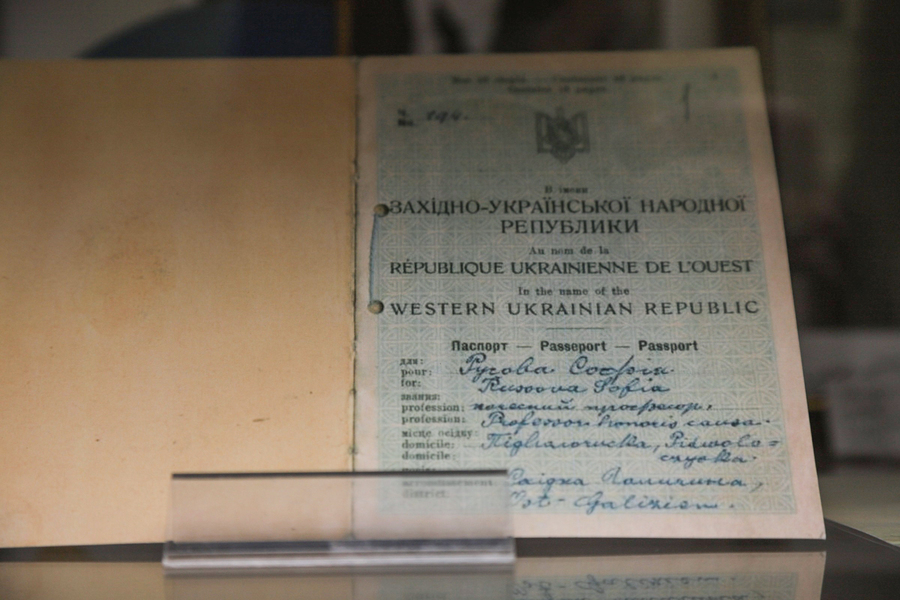 Ч.
No. 194.
В імени
ЗАХІДНО-УКРАЇНСЬКОЇ НАРОДНОЇ
РЕПУБЛИКИ
Au nom de la
RÉPUBLIQUE UKRAINIENNE DE L'OUEST
In the name of the
WESTERN UKRAINIAN REPUBLIC
Паспорт — Passeport — Passport
для:
pour: Русова Софія
for: Russova Sofia
звання:
profession: почесний професор,
profession: Professor honoris causa.
місце осідку:
domicile: Підволочиська, Pidwolo=
domicile: czyska.
Східна Галичина,
Ost-Galizien.
district.